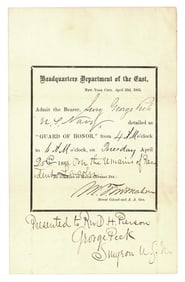 Headquarters Department of the East,
New York City, April 23d, 1865.
Admit the Bearer, Surg George Peck
U S Navy detailed as
"GUARD OF HONOR," from 4 A M o'clock
to 6 A M o'clock, on Tuesday April
25th 1865 Over the remains of Pres
ident Lincoln
Brevet Colonel and A. A. Gen.
Presented to Rev D. H. Pierson
George Peck
Surgeon U.S.N.